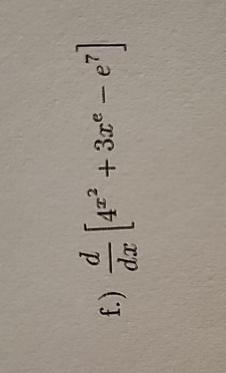 f.) $\frac{d}{dx}\left[4^{x^2} + 3x^e - e^7\right]$